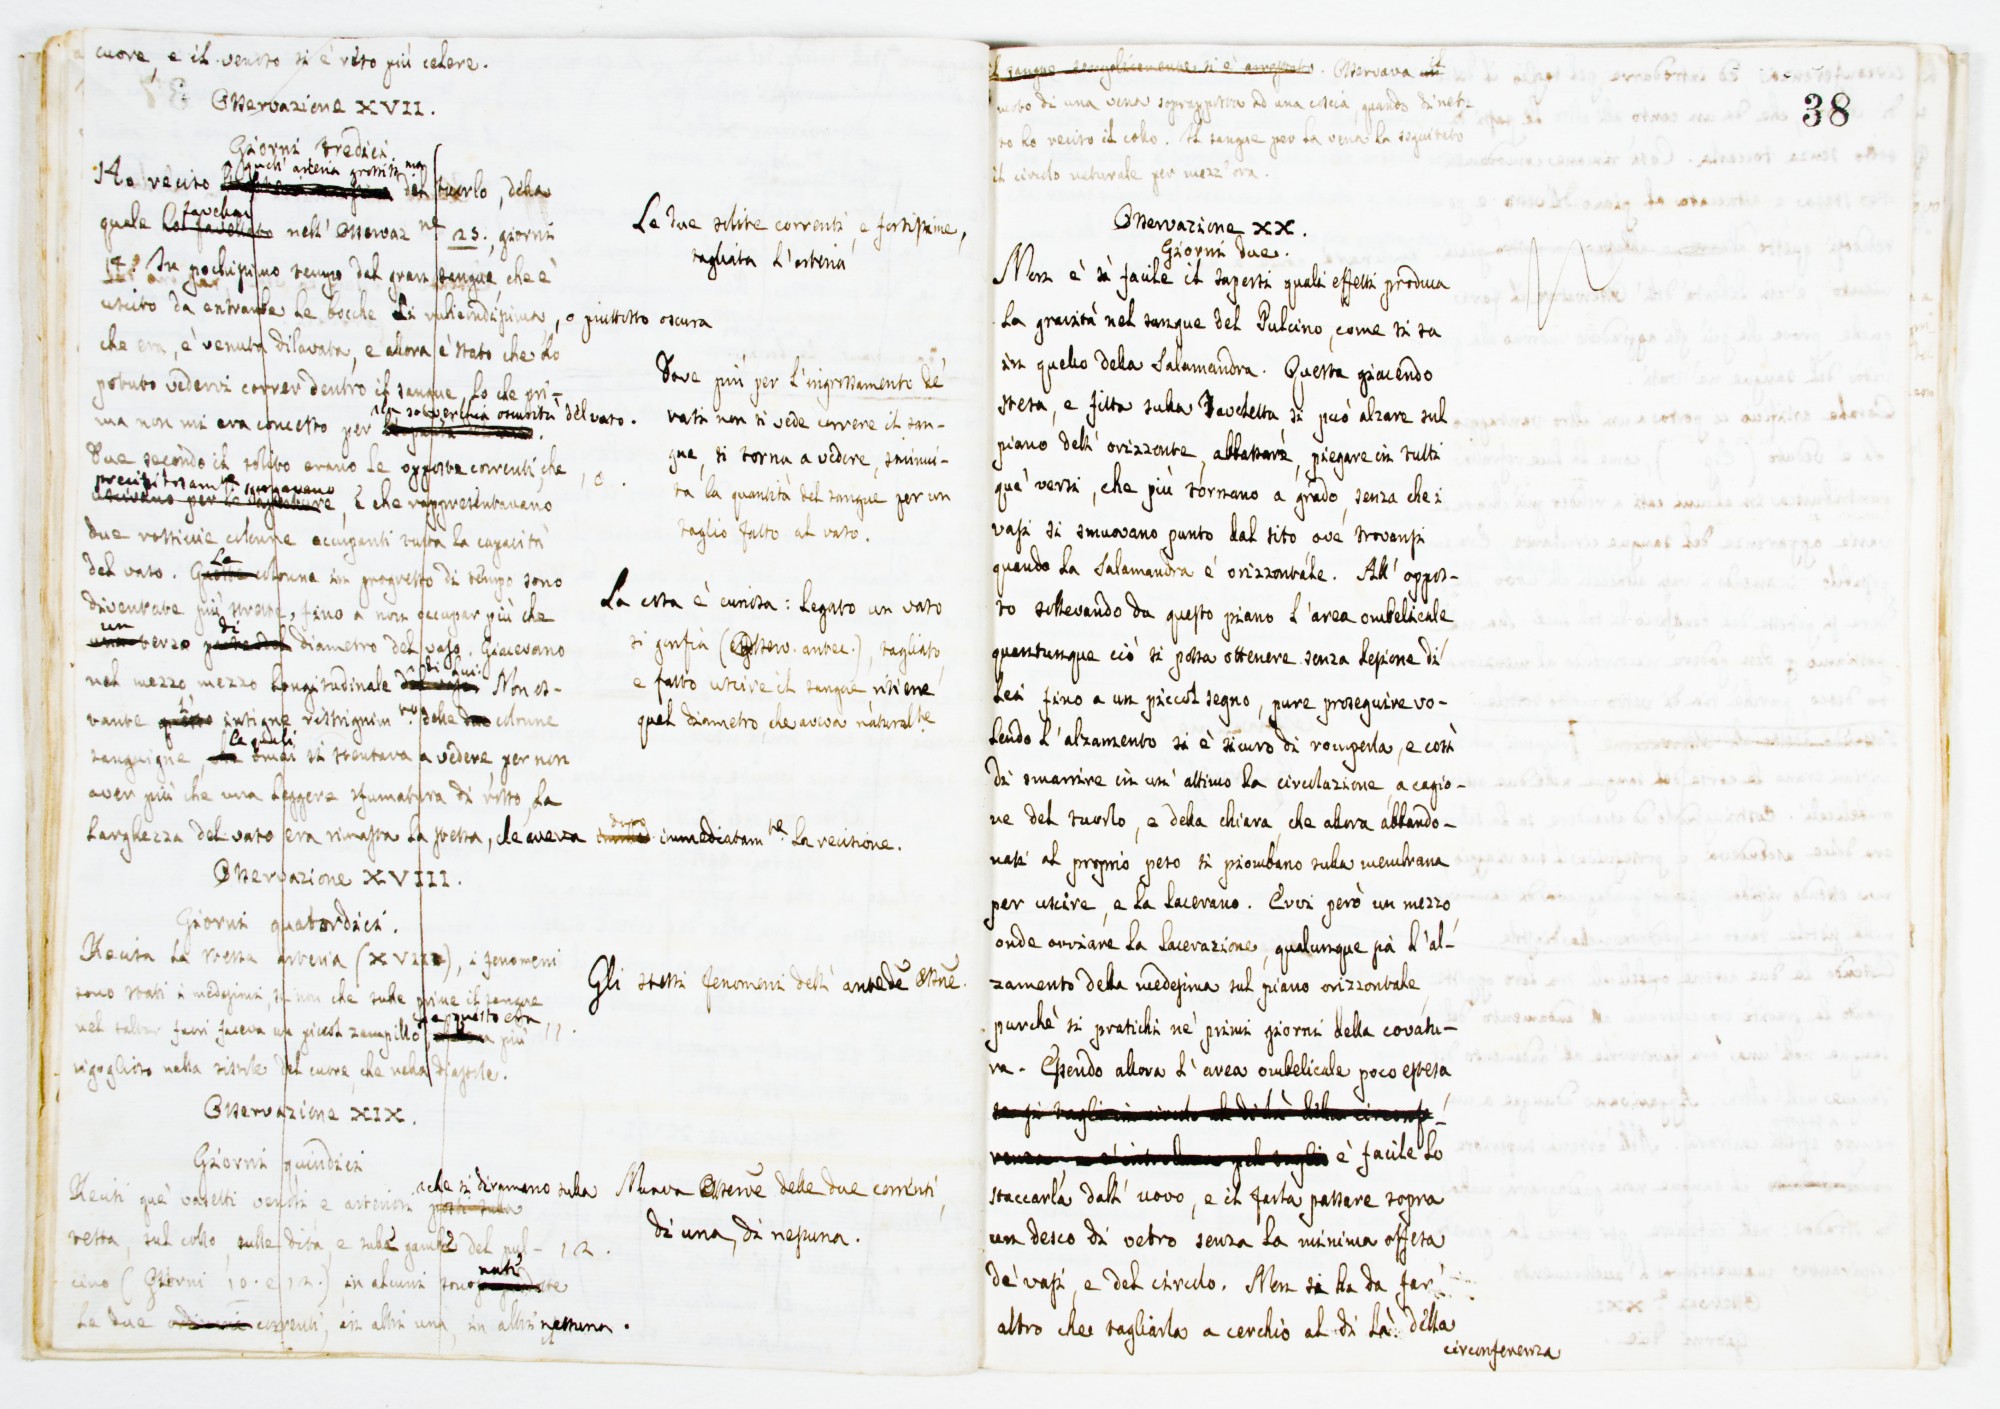 cuore, e il vento si è reso più celere.
Osservazione XVII.
Giorni tredici.
quell' arteria grossissma
14. reciso del tuorlo, della
favellai
quale ho favellato nell' Osservaz.ne 25., giorni
14. In pochissimo tempo dal gran sangue, che è
uscito da entrambe le bocche di rubicondissima, o piuttosto oscura
che era, è venuta dilavata, e allora è stato che ho
potuto vedervi correr dentro il sangue, lo che pri-
ma non mi era concesso per la soverchia oscurità del vaso.
Due secondo il solito erano le opposte correnti, che
precipitosam.te sgorgavano
uscivano per le aperture, e che rappresentavano
due rossicie colonne occupanti tutta la capacità
del vaso. Le colonne in progresso di tempo sono
diventate più strette, fino a non occupar più che
un terzo di diametro del vaso. Giacevano
nel mezzo mezzo longitudinale di lui. Non os-
tante sì insigne restrignim.to delle due colonne
sanguigne, le quali omai si stentava a vedere, per non
aver più che una leggera sfumatura di rosso, la
larghezza del vaso era rimasta la stessa, che aveva dopo immediatam.te la recisione.
Osservazione XVIII.
Giorni quatordici.
Recisa la stessa arteria (XVII), i fenomeni
sono stati i medesimi, se non che sulle prime il sangue
nel saltar fuori faceva un piccol zampillo, e questo era più 11.
rigoglioso nella sistole del cuore, che nella diastole.
Osservazione XIX.
Giorni quindici
Recisi que' vaselli venosi e arteriosi, che si diramano sulla
testa, sul collo, sulle dita, e sulle gambe del pul- 12.
cino (Giorni 10. e 12.) in alcuni sono nate
le due correnti, in altri una, in altri nessuna.
Le due solite correnti, e fortissime,
tagliata l'arteria
Dove più per l'ingrossamento de'
vasi non si vede correre il san-
gue, si torna a vedere, sminui-
ta la quantità del sangue per un
taglio fatto al vaso.
10.
La cosa è curiosa: legato un vaso
si gonfia (Osserv. antec.), tagliato,
e fatto uscire il sangue ritiene
quel diametro, che aveva natural.te
Gli stessi fenomeni dell' anteced.e Oss.ne.
Nuova Osserv.e delle due correnti,
di una, di nessuna.
38
Osservava il
resto di una vena soprapposta ad una coscia, quando di net-
to ho reciso il collo. Il sangue per la vena ha seguitato
il circolo naturale per mezz' ora.
Osservazione XX.
Giorni due.
Non è sì facile il sapersi quali effetti produca
la gravità nel sangue del Pulcino, come si sa
in quello della Salamandra. Questa giacendo
stesa, e fitta sulla tavoletta si può alzare sul
piano dell' orizzonte, abbassare, piegare in tutti
que' versi, che più tornano a grado, senza che i
vasi si smuovano punto dal sito ove trovansi
quando la Salamandra è orizzontale. All' oppos-
to sollevando da questo piano l'area ombelicale
quantunque ciò si possa ottenere senza lesione di
lei fino a un piccol segno, pure proseguire vo-
lendo l'alzamento si è sicuro di romperla, e così
di smarrire in un' attimo la circolazione, a cagio-
ne del tuorlo, e della chiara, che allora abbando-
nati al proprio peso si piombano sulla membrana
per uscire, e la lacerano. Evvi però un mezzo
onde ovviare la lacerazione, qualunque sia l'al-
zamento della medesima sul piano orizzontale,
purchè si pratichi ne' primi giorni della covatu-
ra. Essendo allora l'area ombelicale poco estesa
se si tagli in circolo al di là della circonfe-
renza è facile lo
staccarla dall' uovo, e il farla passare sopra
un desco di vetro senza la minima offesa
de' vasi, e del circolo. Non si ha da far
altro che tagliarla a cerchio al di là della
circonferenza